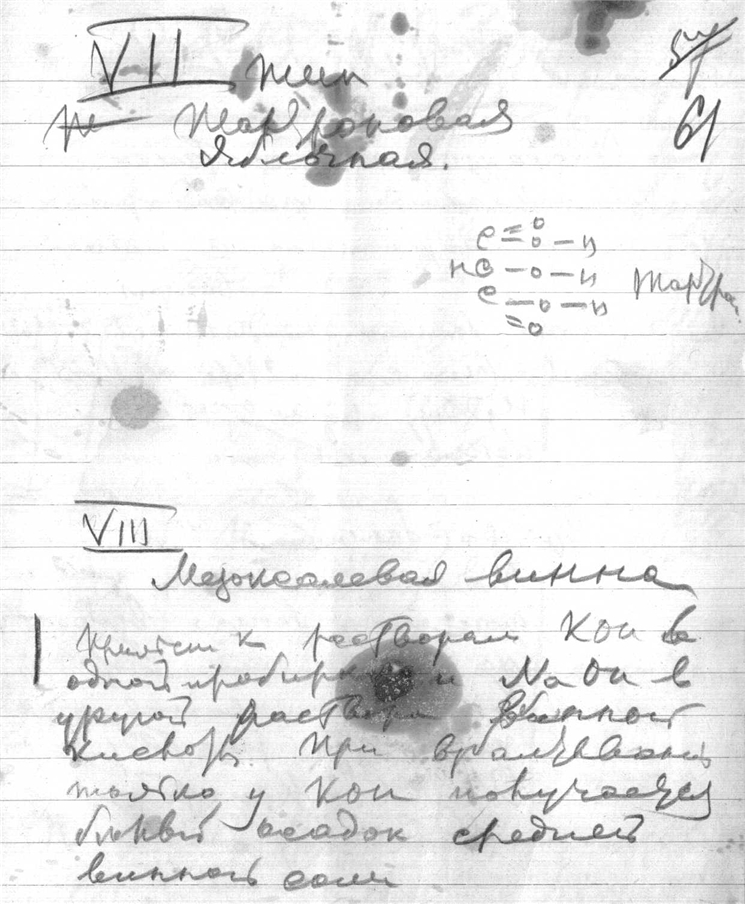 VII тип
57
61
Тартроновая
яблочная.
C = O
— O — H
HC — O — H Тартро
C — O — H
= O
VIII
Мезоксалевая винна
к растворам KOH в
одной пробирке и NaOH в
другой раствора винной
кислоты. При взбалтывании
только у KOH получается
белый осадок средней
винной соли